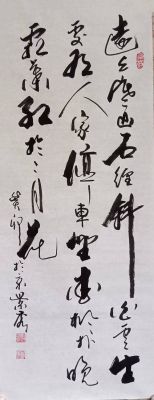 遠上寒山石徑斜白雲生
處有人家停車坐愛楓林晚
霜葉紅於二月花